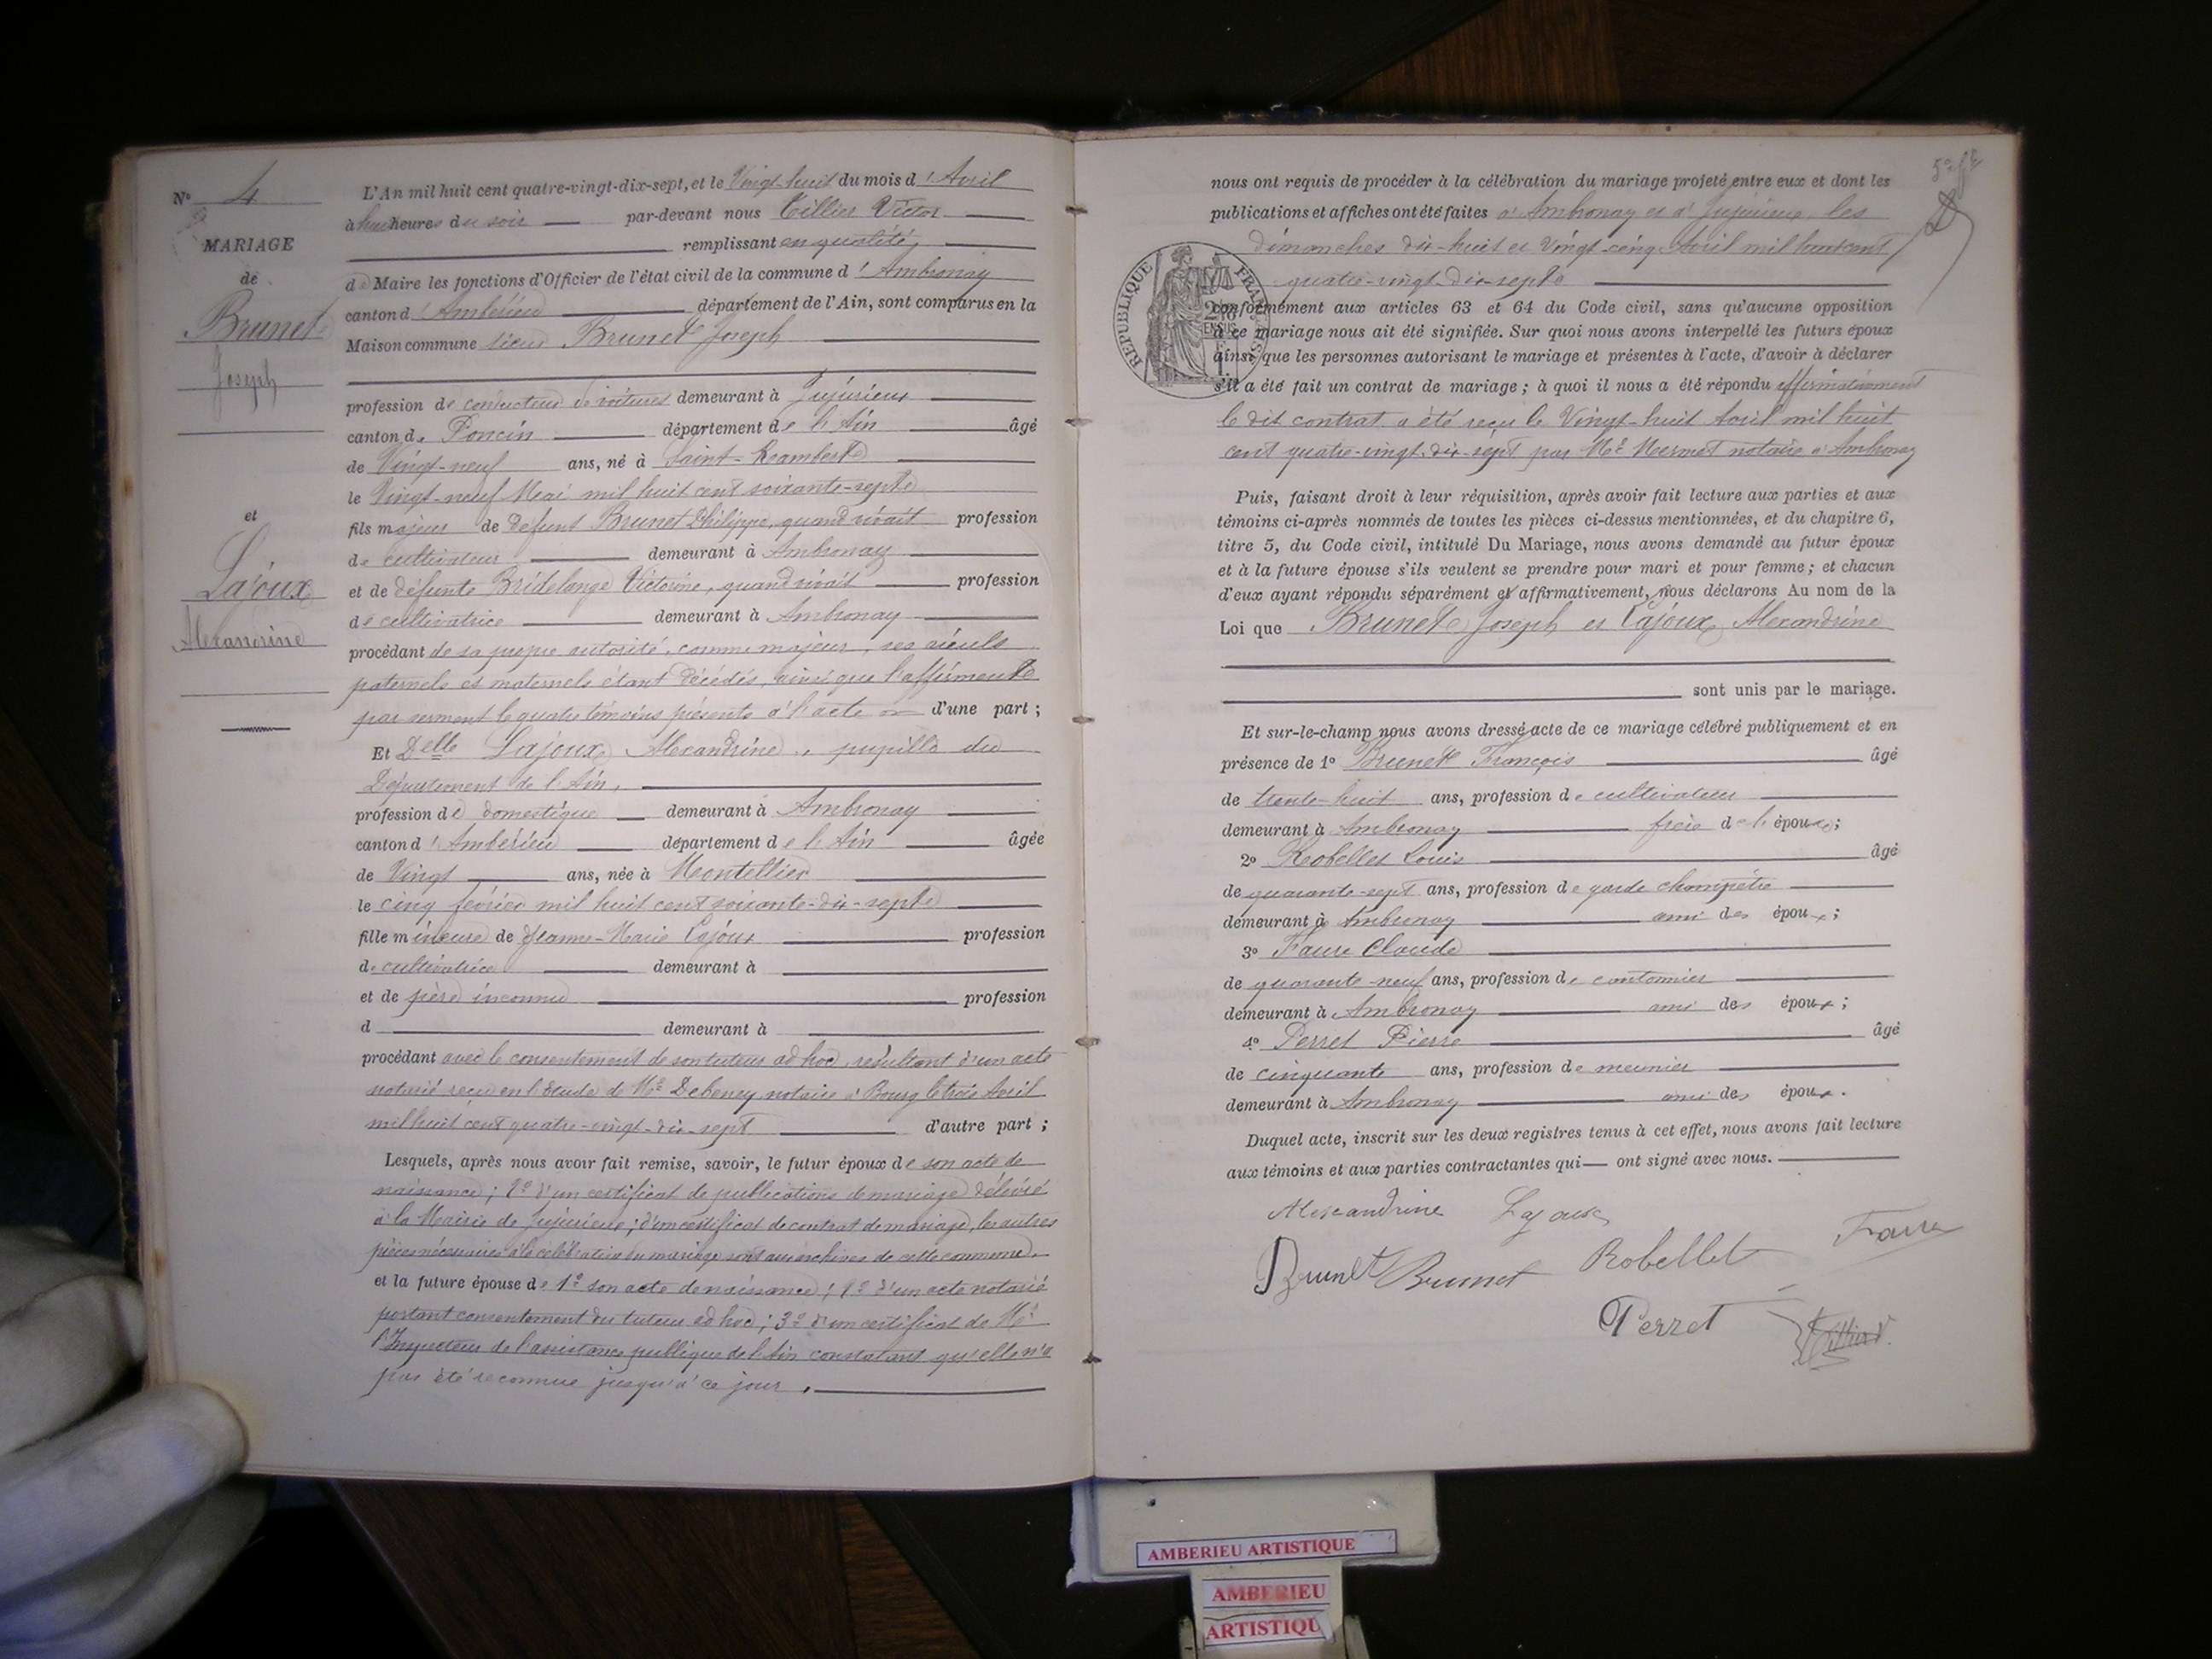 N° 4
MARIAGE
de
Brunet
Joseph
et
Lajoux
Alexandrine
L'An mil huit cent quatre-vingt-dix-sept, et le Vingt-huit du mois d'Avril
à huit heures du soir par-devant nous Tillier Victor
remplissant en qualité
de Maire les fonctions d'Officier de l'état civil de la commune d'Ambronay
canton d'Ambérieu département de l'Ain, sont comparus en la
Maison commune sieur Brunet Joseph
profession de conducteur de voitures demeurant à Jujurieux
canton de Poncin département de l'Ain âgé
de Vingt-neuf ans, né à Saint-Rambert
le Vingt-neuf Mai mil huit cent soixante-sept
fils majeur de défunt Brunet Philippe, quand vivait profession
de cultivateur demeurant à Ambronay
et de défunte Bridelange Victorine, quand vivait profession
de cultivatrice demeurant à Ambronay
procédant de sa propre autorité, comme majeur, ses aïeuls
paternels et maternels étant décédés, ainsi que l'affirment
par serment le quatre témoins présents à l'acte d'une part ;
Et Delle Lajoux Alexandrine, pupille du
Département de l'Ain,
profession de domestique demeurant à Ambronay
canton d'Ambérieu département de l'Ain âgée
de Vingt ans, née à Montellier
le cinq février mil huit cent soixante-dix-sept
fille mineure de Jeanne-Marie Lajoux profession
de cultivatrice demeurant à
et de père inconnu profession
d demeurant à
procédant avec le consentement de son tuteur ad hoc, résultant d'un acte
notarié reçu en l'étude de Me Debeney notaire à Bourg le trois Avril
mil huit cent quatre-vingt-dix-sept d'autre part ;
Lesquels, après nous avoir fait remise, savoir, le futur époux de son acte de
naissance ; 2° d'un certificat de publications de mariage délivré
à la Mairie de Jujurieux ; d'un certificat de contrat de mariage, les autres
pièces nécessaires à la célébration du mariage sont aux archives de cette commune.
et la future épouse de 1° son acte de naissance ; 2° d'un acte notarié
portant consentement du tuteur ad hoc ; 3° d'un certificat de Mr
l'Inspecteur de l'assistance publique de l'Ain constatant qu'elle n'a
pas été reconnue jusqu'à ce jour.
nous ont requis de procéder à la célébration du mariage projeté entre eux et dont les
publications et affiches ont été faites à Ambronay et à Jujurieux, les
dimanches dix-huit et vingt-cinq Avril mil huit cent
quatre-vingt-dix-sept
RÉPUBLIQUE FRANÇAISE
conformément aux articles 63 et 64 du Code civil, sans qu'aucune opposition
à ce mariage nous ait été signifiée. Sur quoi nous avons interpellé les futurs époux
ainsi que les personnes autorisant le mariage et présentes à l'acte, d'avoir à déclarer
s'il a été fait un contrat de mariage ; à quoi il nous a été répondu affirmativement
le dit contrat a été reçu le Vingt-huit Avril mil huit
cent quatre-vingt-dix-sept par Me Mermet notaire à Ambronay
Puis, faisant droit à leur réquisition, après avoir fait lecture aux parties et aux
témoins ci-après nommés de toutes les pièces ci-dessus mentionnées, et du chapitre 6,
titre 5, du Code civil, intitulé Du Mariage, nous avons demandé au futur époux
et à la future épouse s'ils veulent se prendre pour mari et pour femme ; et chacun
d'eux ayant répondu séparément et affirmativement, nous déclarons Au nom de la
Loi que Brunet Joseph et Lajoux Alexandrine
sont unis par le mariage.
Et sur-le-champ nous avons dressé acte de ce mariage célébré publiquement et en
présence de 1° Brunet François âgé
de trente-huit ans, profession de cultivateur
demeurant à Ambronay frère de l'époux ;
2° Robellet Louis âgé
de quarante-sept ans, profession de garde champêtre
demeurant à Ambronay ami des époux ;
3° Faure Claude
de quarante-neuf ans, profession de cantonnier
demeurant à Ambronay ami des époux ;
4° Perret Pierre âgé
de cinquante ans, profession de meunier
demeurant à Ambronay ami des époux.
Duquel acte, inscrit sur les deux registres tenus à cet effet, nous avons fait lecture
aux témoins et aux parties contractantes qui ont signé avec nous.
Alexandrine Lajoux
Brunet Brunet Robellet Faure
Perret Tillier V.
AMBERIEU ARTISTIQUE
AMBERIEU
ARTISTIQU